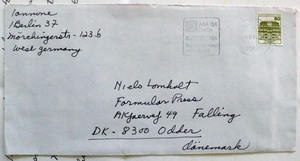 Ionnone
1 Berlin 37
Mörchingerstr - 123.6
West germany
80
Niels Lomholt
Formular Press
Falling
DK - 8300 Odder
dänemark